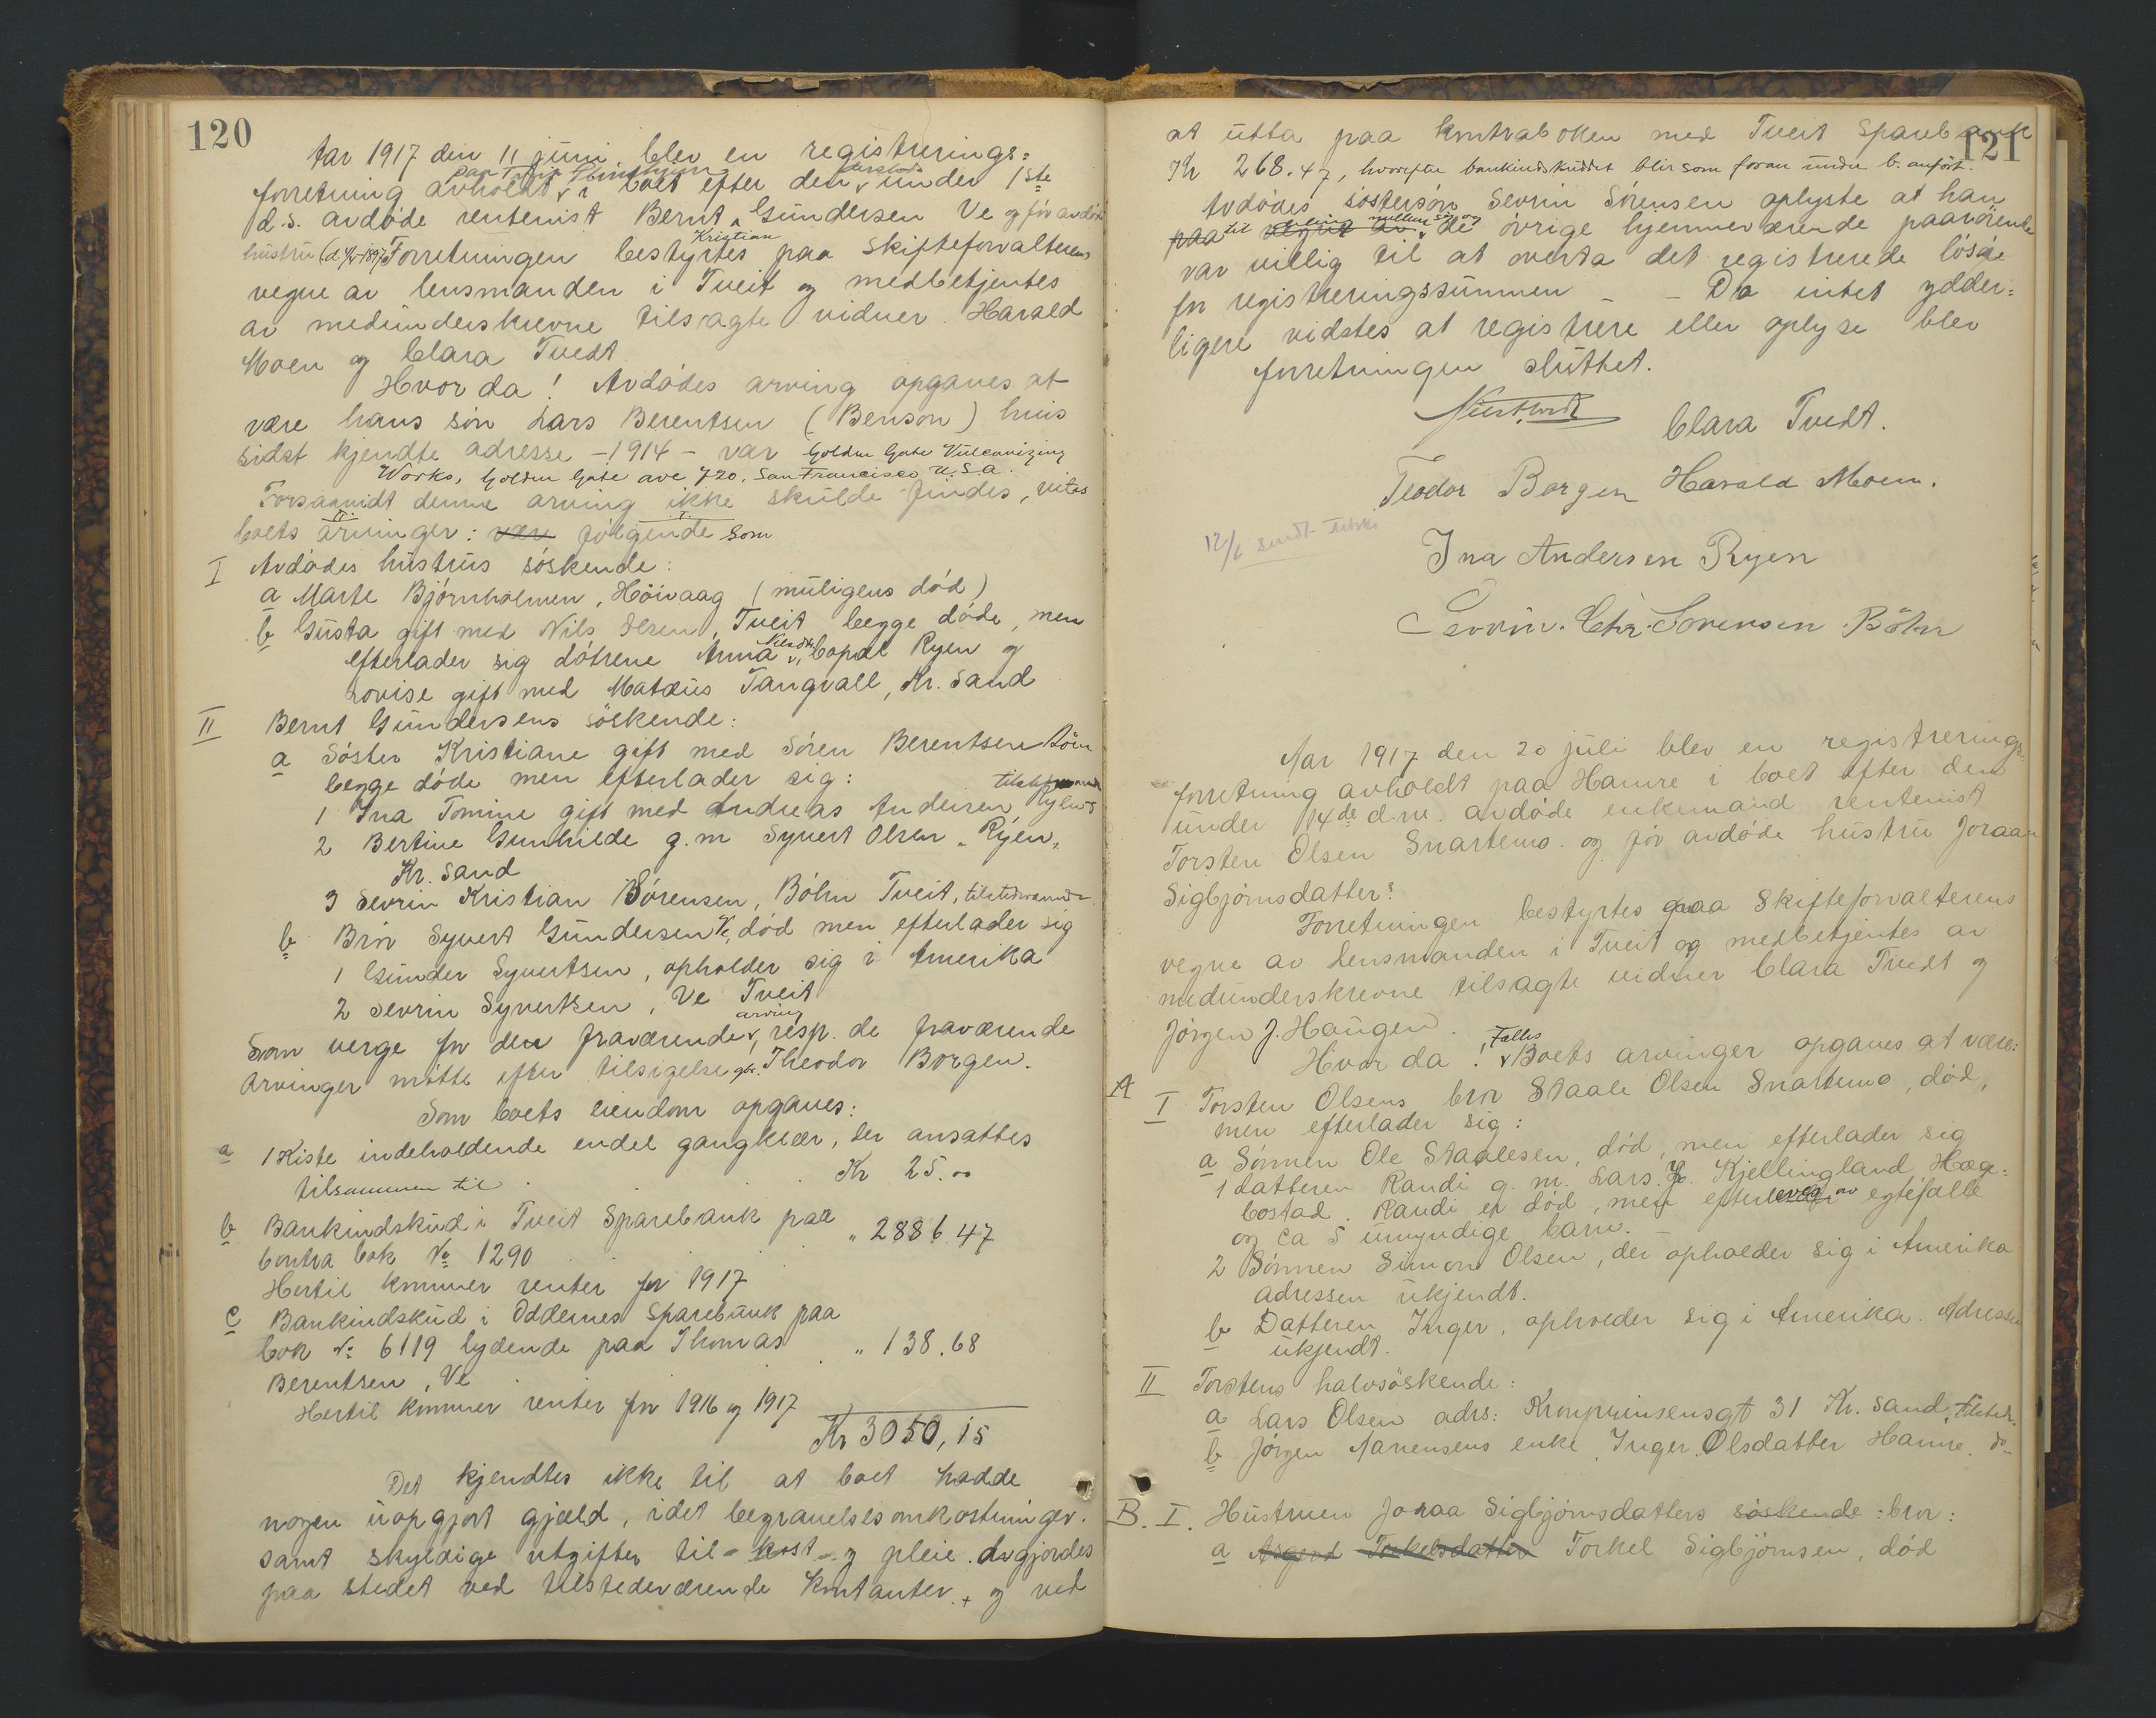 120
Aar 1917 den 11 juni blev en registrerings=
forretning avholdt i boet efter den under 1ste
d.s. avdøde rentenist Bernt Kristian Gundersen Ve og før avdøde
hustru Forretningen bestyrtes paa skifteforvalterens
vegne av lensmanden i Tveit og medbetjentes
av medunderskrevne tilsagte vidner Harald
Moen og Clara Tvedt
Hvor da! Avdødes arving opgaves at
være hans søn Lars Berentsen (Benson) hvis
sidst kjendte adresse - 1914 - var Golden Gate Vulcanizing
Works, Golden Gate ave 720, San Francisco U.S.a.
Forsaavidt denne arving ikke skulde findes, vites
boets arvinger: være følgende som
I Avdødes hustrus søskende:
a Marte Bjørnholmen, Höivaag (muligens død)
b Gusta gift med Nils Olsen, Tveit begge døde, men
efterlader sig døtrene Anna Copal Ryen og
Lovise gift med Matæus Tangvall, Kr. Sand
II Bernt Gundersens søskende:
a Søster Kristiane gift med Søren Berentsen Bön
begge døde men efterlader sig:
1 Ina Tomine gift med Andreas Andersen Ryen
2 Bertine Gunhilde g.m Syvert Olsen Ryen,
Kr. Sand
3 Sevrin Kristian Sørensen, Bøhn Tveit, tilstedværende
b Bror Syvert Gundersen Ve, død men efterlader sig
1 Gunder Syvertsen, opholder sig i Amerika
2 Sevrin Syvertsen, Ve Tveit
Som verge for den fraværende arving, resp. de fraværende
arvinger møtte efter tilsigelse gbr. Theodor Borgen.
Som boets eiendom opgaves:
a 1 Kiste indeholdende endel gangklær, der ansattes
tilsammen til Kr 25.00
b Bankindskud i Tveit Sparebank paa
Contra bok No 1290 " 2886.47
Hertil kommer renter for 1917
c Bankindskud i Oddernes Sparebank paa
bok No 6119 lydende paa Thomas " 138.68
Berentsen, Ve
Hertil kommer renter for 1916 og 1917
Kr 3050,15
Det kjendtes ikke til at boet hadde
nogen uopgjort gjæld, idet begravelsesomkostninger
samt skyldige utgifter til kost og pleie avgjordes
paa stedet ved tilstedeværende kontanter + og ved
121
at utta paa kontraboken med Tveit Sparebank
Kr 268.47, hvorefter bankindskuddet blir som foran under b. anført.
Avdødes søstersøn Sevrin Sørensen oplyste at han
paa til deling mellem sig og de øvrige hjemmeværende paarørende
var villig til at overta det registrerede løsøre
for registreringssummen - - Da intet ydder=
ligere vidstes at registrere eller oplyse blev
forretningen sluttet.
Clara Tvedt.
Teodor Borgen Harald Moen.
12/6 sendt
Ina Andersen Ryen
Sevrin. Chr. Sørensen Böhn
Aar 1917 den 20 juli blev en registrerings=
forretning avholdt paa Hamre i boet efter den
under 14de d.m. avdøde enkemand rentenist
Torsten Olsen Snartemo og før avdøde hustru Joraan
Sigbjørnsdatter:
Forretningen bestyrtes paa Skifteforvalterens
vegne av Lensmanden i Tveit og medbetjentes av
medunderskrevne tilsagte vidner Clara Tvedt og
Jørgen J. Haugen.
Hvor da! Fælles Boets arvinger opgaves at være:
A I Torsten Olsens bror Staale Olsen Snartemo, død,
men efterlader sig:
a Sønnen Ole Staalesen, død, men efterlader sig
1 datteren Randi g. m. Lars Kjellingland, Hæge=
bostad. Randi er død, men efterleves av egtefælle
og ca 5 umyndige barn.
2 Sønnen Simon Olsen, der opholder sig i Amerika
adressen ukjendt.
b Datteren Inger, opholder sig i Amerika. Adressen
ukjendt.
II Torstens halvsøskende:
a Lars Olsen adrs: Kronprinsensgt 31 Kr. Sand, tilsted.
b Jørgen Aanensens enke Inger Olsdatter Hamre. do-
B. I. Hustruen Joraa Sigbjørnsdatters søskende: bror:
a Asgerd Torkelsdatter Torkel Sigbjørnsen, død